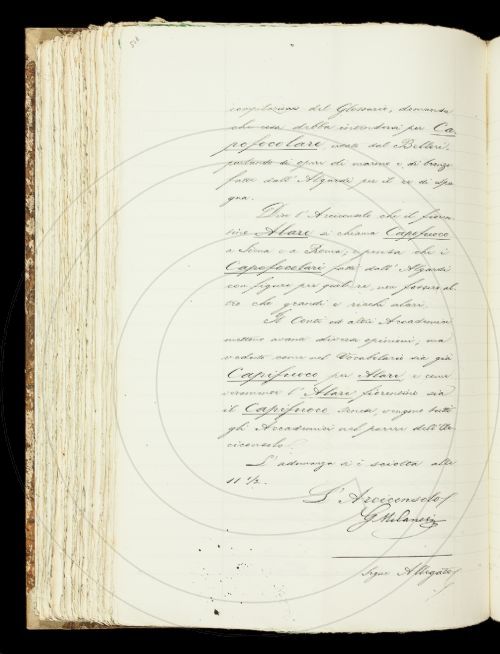 compilazione del Glossario, domanda
che cosa debba intendersi per Ca-
pofocolare, usato dal Bellori,
parlando di opere di marmo e di bronzo
fatte dall'Algardi per il re di Spa-
gna.
Dice l'Arciconsolo che il fioren-
tino Alare si chiama Capofuoco
a Siena e a Roma; e pensa che i
Capofocolari fatti dall'Algardi
con figure per quel re, non fossero al-
tro che grandi e ricchi alari.
Il Conti ed altri Accademici
mettono avanti diverse opinioni, ma
veduto come nel Vocabolario sia già
Capifuoco per Alare, e come
veramente l'Alare fiorentino sia
il Capifuoco senese, vengono tutti
gli Accademici nel parere dell'Ar-
ciconsolo.
L'adunanza si è sciolta alle
11 1/2.
L'Arciconsolo
G Milanesi
Segue Allegato